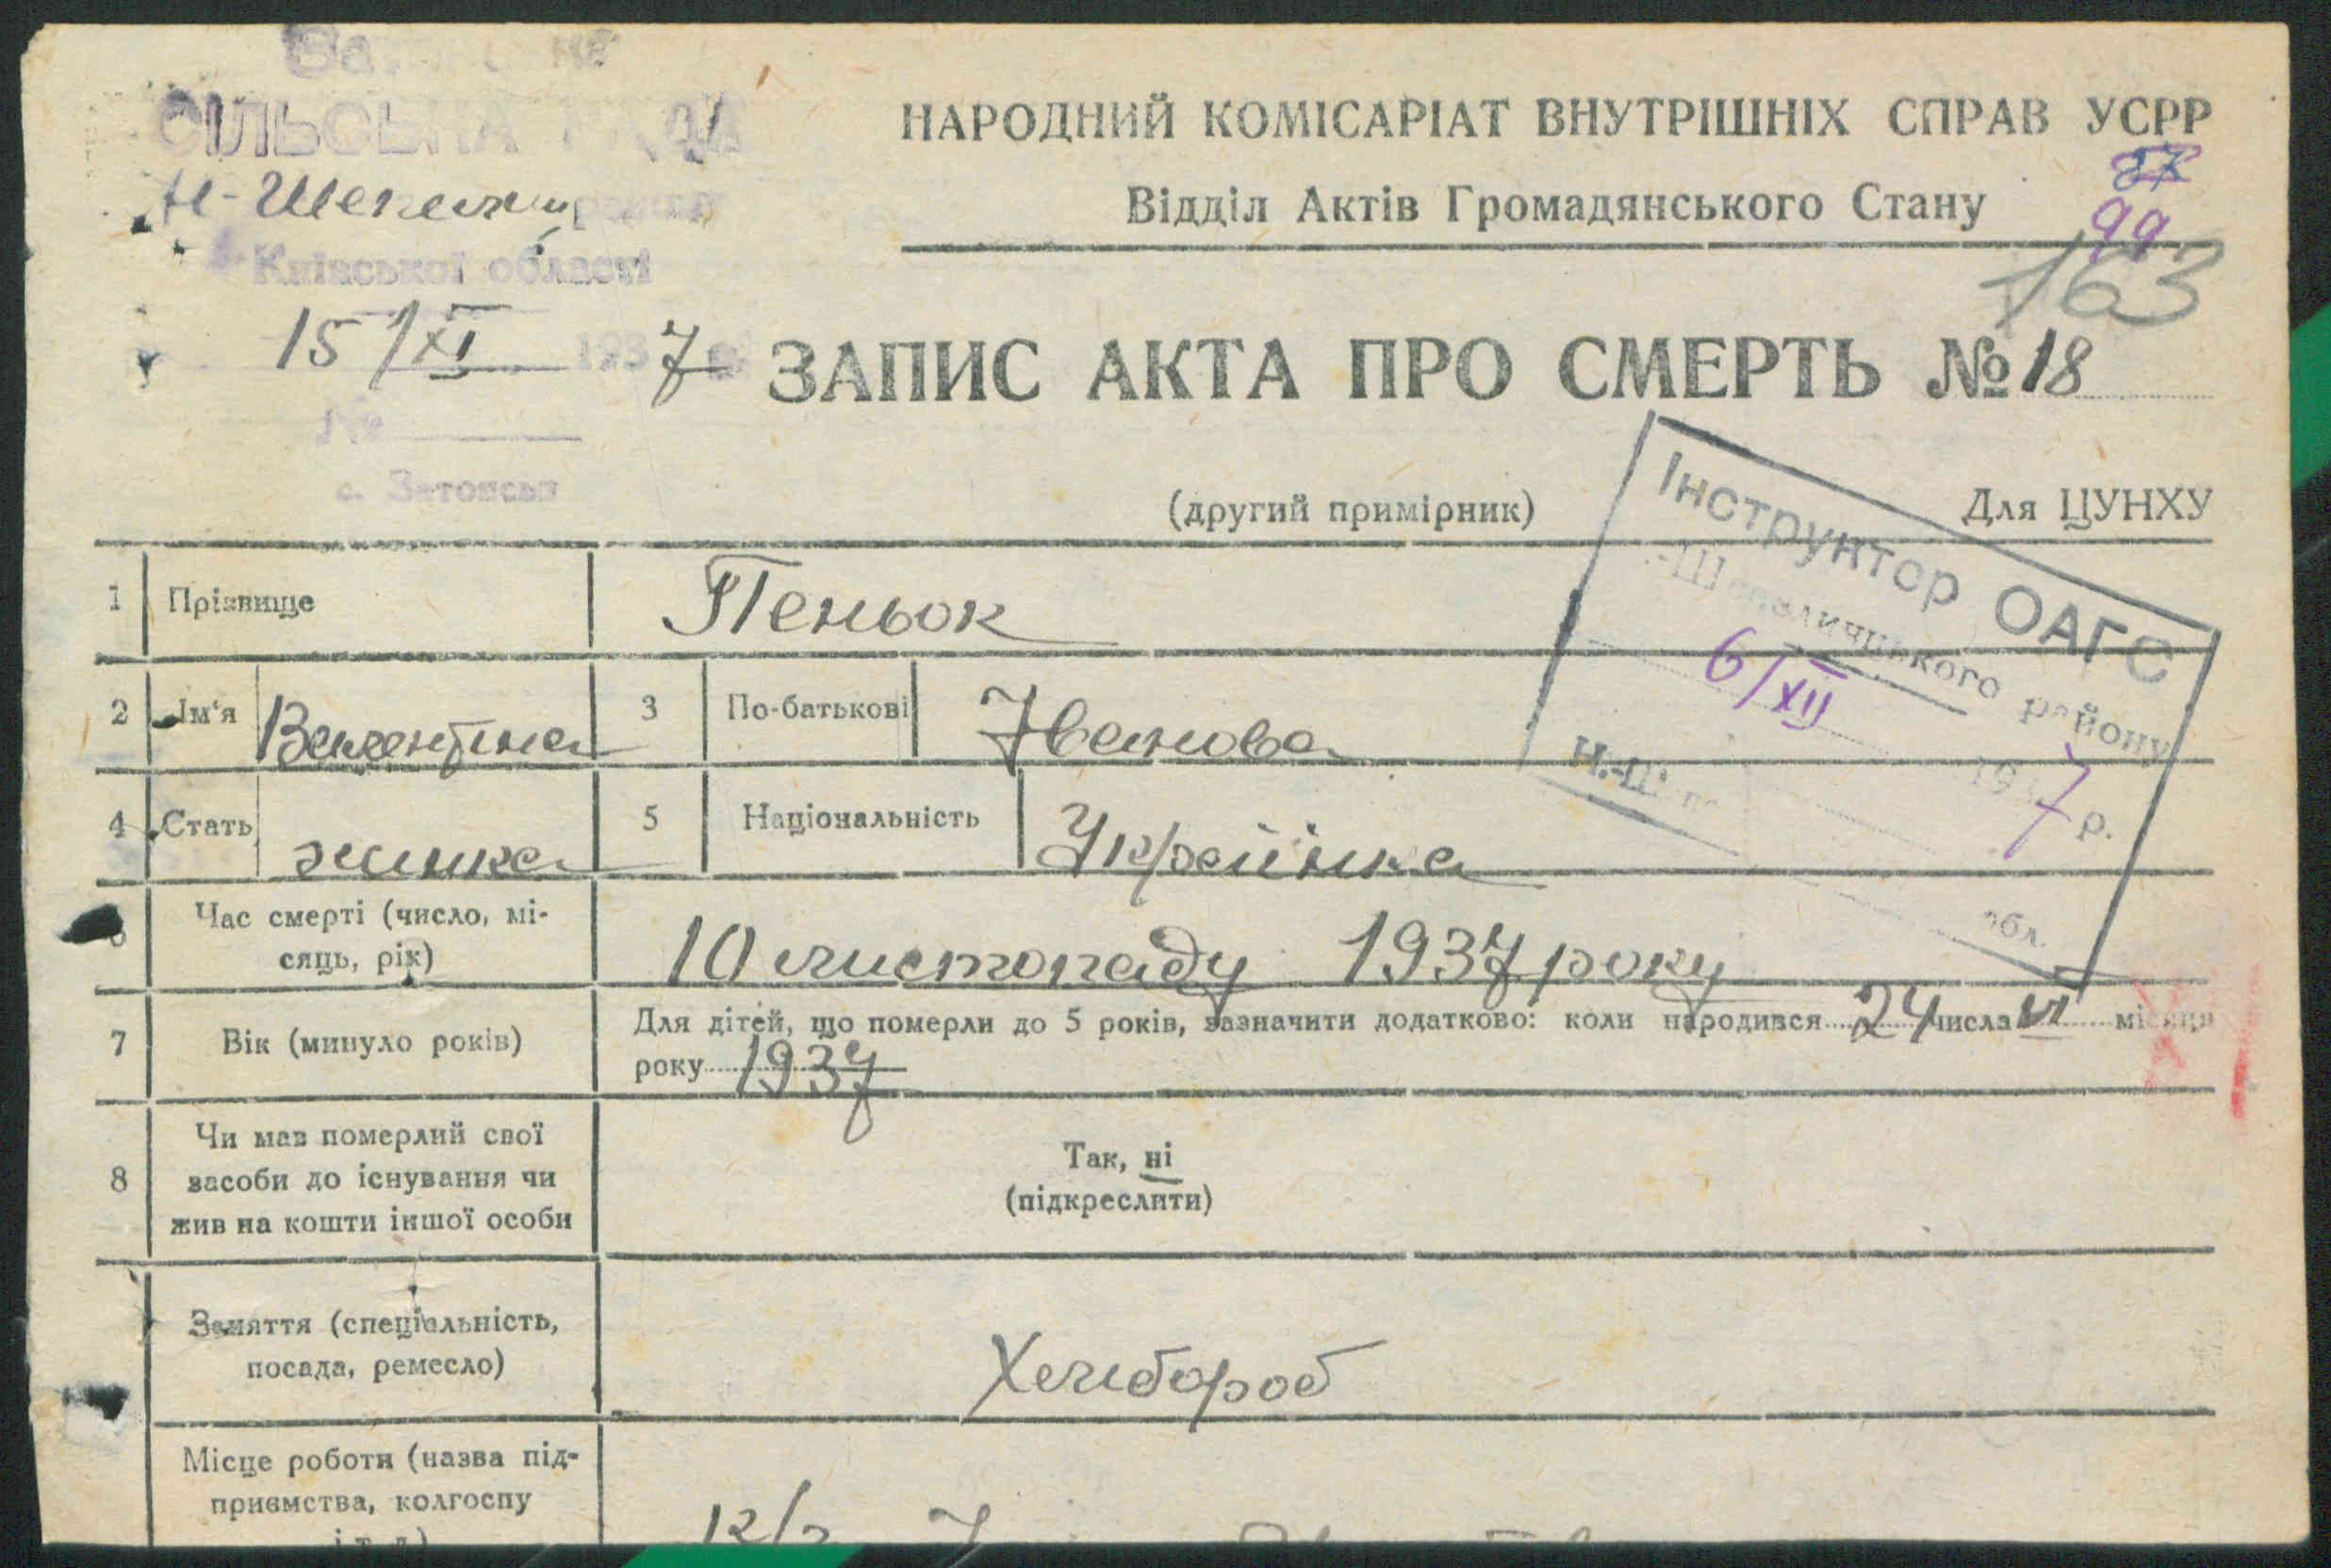 СІЛЬСЬКА РАДА
Н-Шепелиц
Київської області
15/XI 1937 р.
№
НАРОДНИЙ КОМІСАРІАТ ВНУТРІШНІХ СПРАВ УСРР
Відділ Актів Громадянського Стану
99
163
ЗАПИС АКТА ПРО СМЕРТЬ № 18
(другий примірник)
Для ЦУНХУ
Інструктор ОАГС
району
6/XII 1937 р.
обл.
1 Прізвище Пеньок
2 Ім'я Валентина 3 По-батькові Іванова
4 Стать жинка 5 Національність Українка
6 Час смерті (число, мі-
сяць, рік) 10 листопаду 1937 року
7 Вік (минуло років) Для дітей, що померли до 5 років, зазначити додатково: коли народився 24 числа VI місяця
року 1937
8 Чи мав померлий свої
засоби до існування чи
жив на кошти іншої особи
Так, ні
(підкреслити)
Заняття (спеціальність,
посада, ремесло) Хлибороб
Місце роботи (назва під-
приємства, колгоспу
і т. д.)
к/г